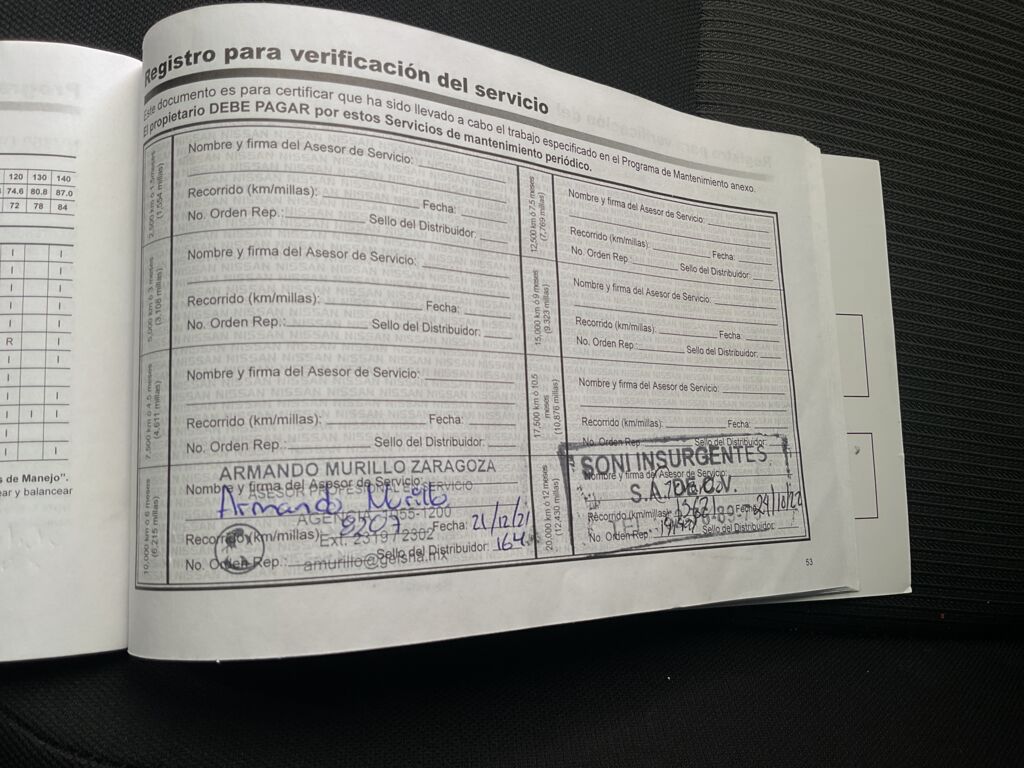 120 130 140
74.6 80.8 87.0
72 78 84
I I
I I
I I
I I
I I
R I
I I
I I
I I
I I I
I I
I I
s de Manejo".
ear y balancear
Registro para verificación del servicio
Este documento es para certificar que ha sido llevado a cabo el trabajo especificado en el Programa de Mantenimiento anexo.
El propietario DEBE PAGAR por estos Servicios de mantenimiento periódico.
2,500 km ó 1.5 meses
(1,554 millas)
Nombre y firma del Asesor de Servicio:
Recorrido (km/millas): Fecha:
No. Orden Rep.: Sello del Distribuidor:
5,000 km ó 3 meses
(3,108 millas)
Nombre y firma del Asesor de Servicio:
Recorrido (km/millas): Fecha:
No. Orden Rep.: Sello del Distribuidor:
7,500 km ó 4.5 meses
(4,611 millas)
Nombre y firma del Asesor de Servicio:
Recorrido (km/millas): Fecha:
No. Orden Rep.: Sello del Distribuidor:
10,000 km ó 6 meses
(6,215 millas)
ARMANDO MURILLO ZARAGOZA
Nombre y firma del Asesor de Servicio:
ASESOR PROFESIONAL DE SERVICIO
Armando Murillo
AGENCIA 1055-1200
Recorrido (km/millas) 8307 Fecha: 21/12/21
Ext. 2319 / 2302
No. Orden Rep.: Sello del Distribuidor: 164
amurillo@geisha.mx
12,500 km ó 7.5 meses
(7,769 millas)
Nombre y firma del Asesor de Servicio:
Recorrido (km/millas): Fecha:
No. Orden Rep.: Sello del Distribuidor:
15,000 km ó 9 meses
(9,323 millas)
Nombre y firma del Asesor de Servicio:
Recorrido (km/millas): Fecha:
No. Orden Rep.: Sello del Distribuidor:
17,500 km ó 10.5
meses
(10,876 millas)
Nombre y firma del Asesor de Servicio:
Recorrido (km/millas): Fecha:
No. Orden Rep. Sello del Distribuidor:
20,000 km ó 12 meses
(12,430 millas)
SONI INSURGENTES
Nombre y firma del Asesor de Servicio:
S.A. DE C.V.
Recorrido (km/millas) Fecha: 24/10/22
No. Orden Rep.: Sello del Distribuidor:
53